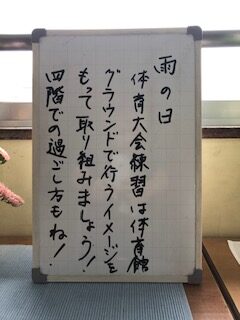 雨の日
体育大会練習は体育館
グラウンドで行うイメージを
もって取り組みましょう！
四階での過ごし方もね！